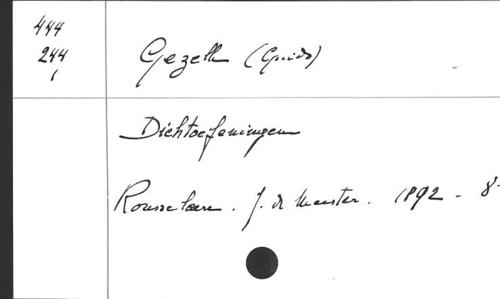 444
244
1
Gezelle (Guido)
Dichtoefeningen
Rousselare. J. de Meester. 1892 - 8-